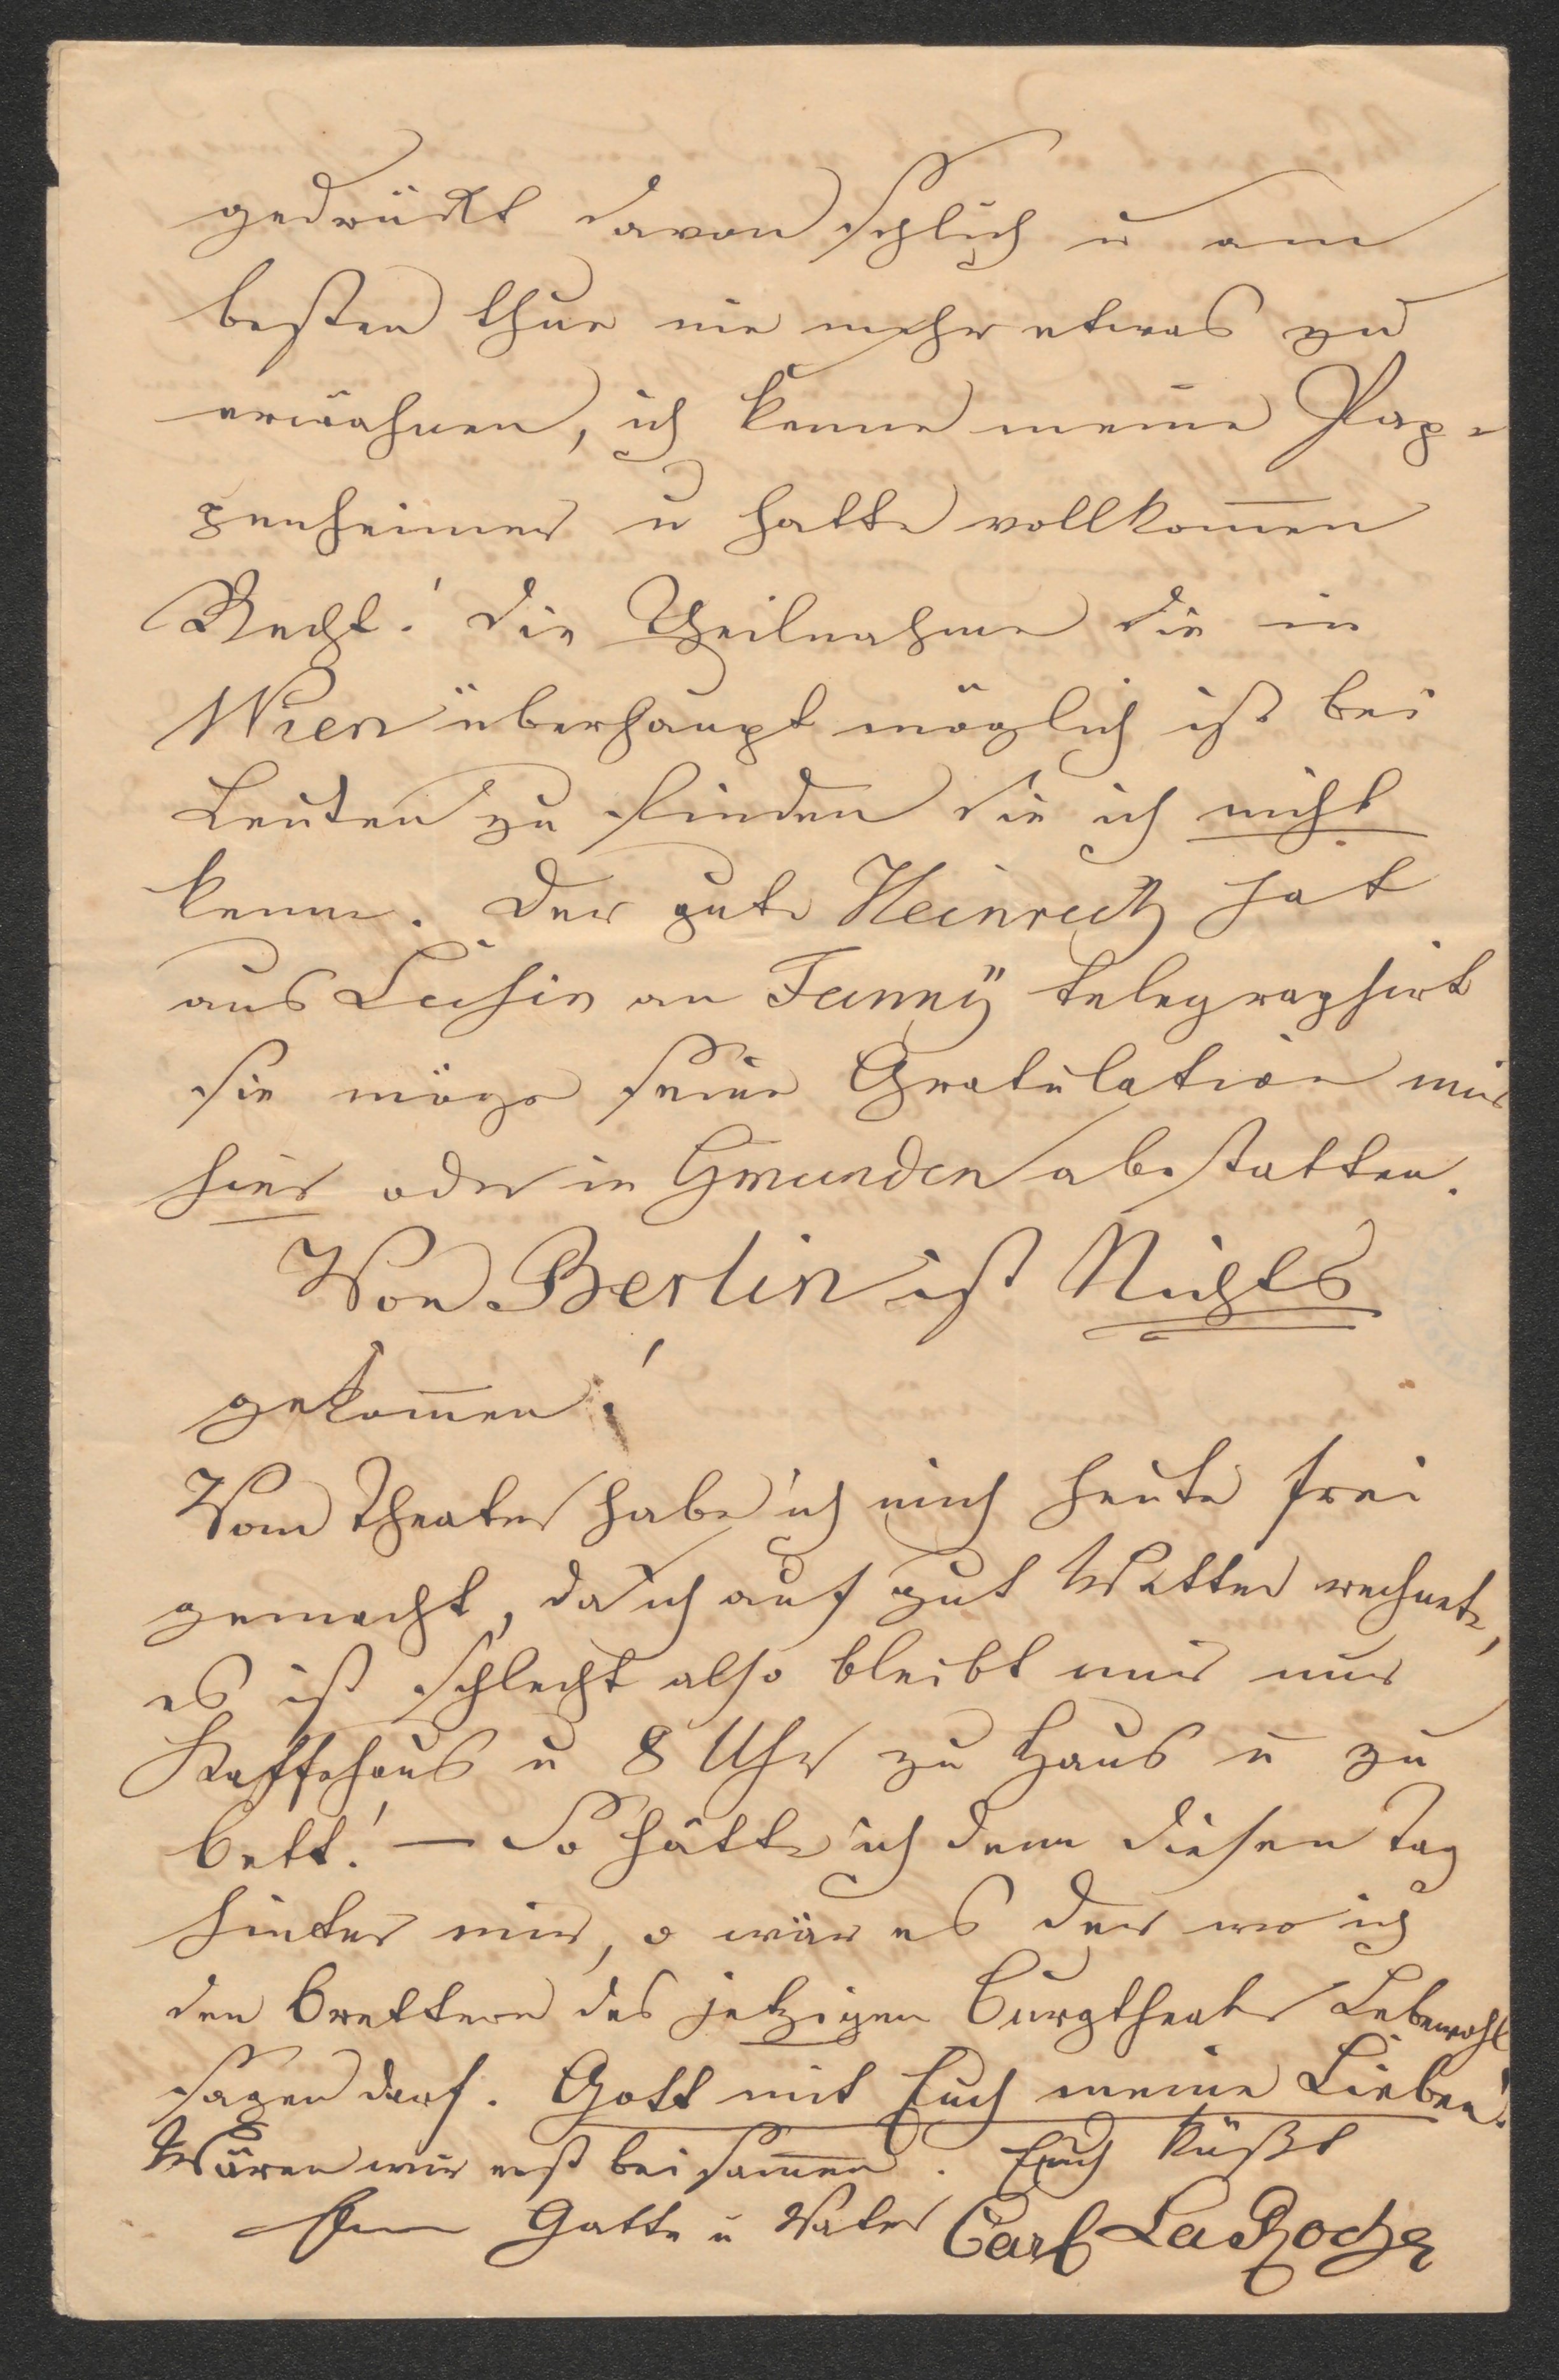 gedrückt davon schlich u am
besten thue nie mehr etwas zu
erwähnen, ich kenne meine Pap-
penheimer u hatte vollkom̅en
Recht! Die Theilnahme die in
Wien überhaupt möglich ist bei
Leuten zu finden die ich nicht
kenne. Der gute Heinrich hat
aus an Fanny telegraphirt
sie möge seine Gratulation mir
hier oder in Gmunden abstatten.
Von Berlin ist Nichts
gekom̅en!
Vom Theater habe ich mich heute frei
gemacht, da ich auf gut Wetter rechnete,
es ist schlecht also bleibt mir nur
Kaffehaus u 8 Uhr zu Haus u zu
Bett! — So hätte ich denn diesen Tag
hinter mir, o wär es der wo ich
den Brettern des jetzigen Burgtheater Lebewohl
sagen darf. Gott mit Euch meine Lieben!
Wären wir erst beisam̅en. Euch küßt
Euer Gatte u Vater Carl La Roche